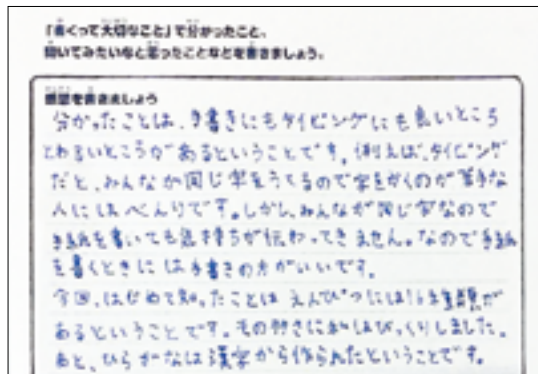 「書くって大切なこと」で分かったこと、
聞いてみたいなと思ったことなどを書きましょう。
感想を書きましょう
分かったことは、手書きにもタイピングにも良いところ
とわるいところがあるということです。例えば、タイピング
だと、みんなが同じ字をうてるので字をかくのが苦手な
人にはべんりです。しかし、みんなが同じ字なので
手紙を書いても気持ちが伝わってきません。なので手紙
を書くときには手書きの方がいいです。
今回、はじめて知ったことはえんぴつには種類が
あるということです。その多さにはびっくりしました。
あと、ひらがなは漢字から作られたということです。